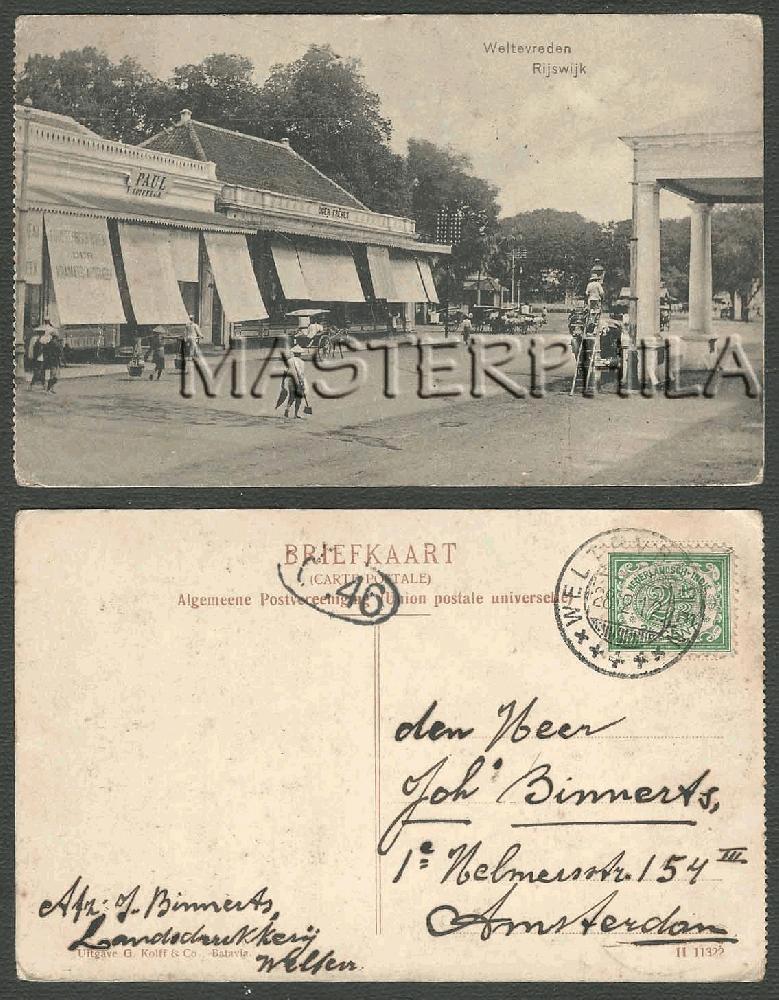 Weltevreden
Rijswijk
PAUL
OGER FRÈRES
MASTERPHILA
BRIEFKAART
(CARTE POSTALE)
Algemeene Postvereeniging Union postale universelle
46
WELT
NEDERLANDSCH-INDIË
2½
den Heer
Joh˚ Binnerts,
1e Helmersstr. 154 III
Amsterdam
Afz: J. Binnerts,
Landsdrukkerij
Weltevr.
Uitgave G. Kolff & Co., Batavia.
H 11322